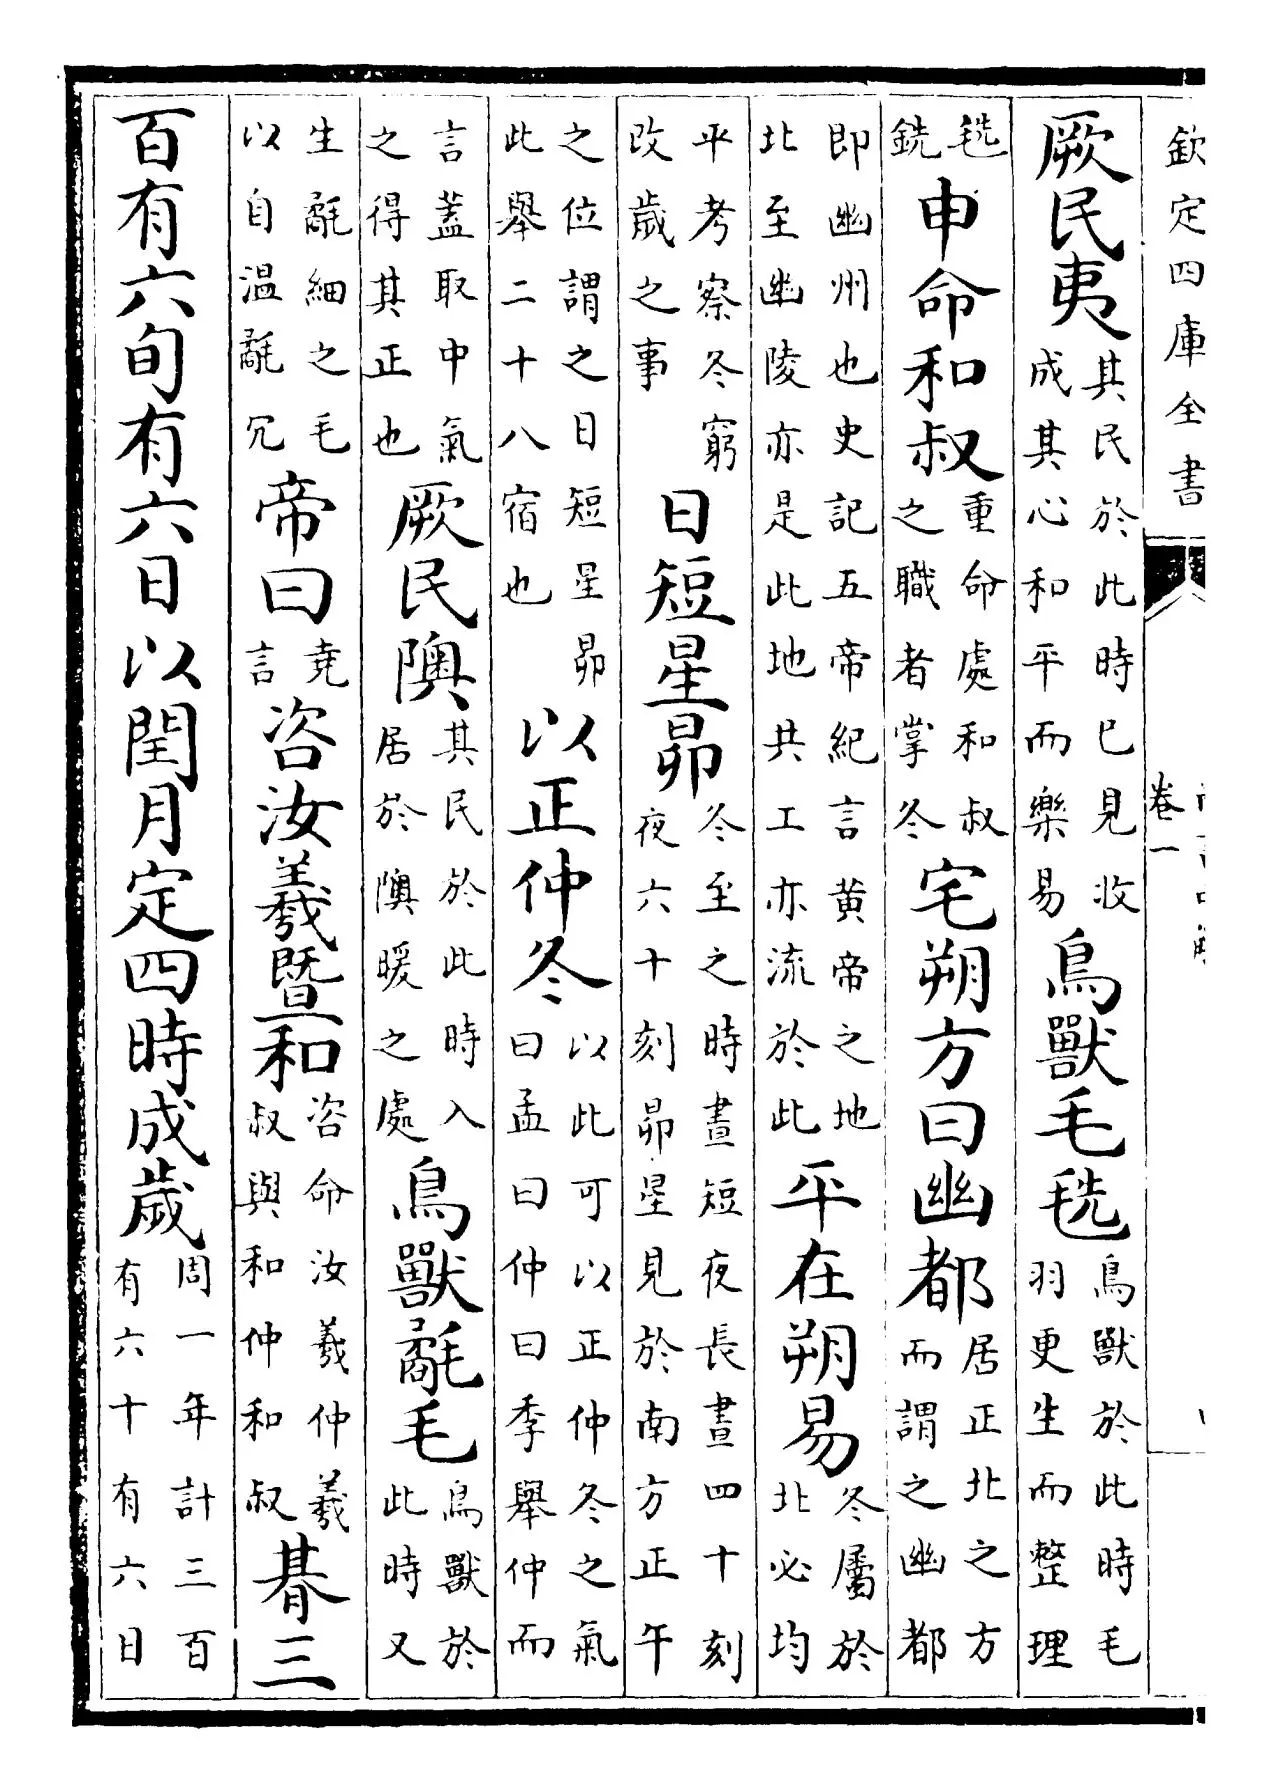 欽定四庫全書
卷一
厥民夷其民於此時已見收成其心和平而樂易鳥獸毛毨鳥獸於此時毛羽更生而整理
毨銑申命和叔重命處和叔之職者掌冬宅朔方曰幽都居正北之方而謂之幽都
即幽州也史記五帝紀言黄帝之地北至幽陵亦是此地共工亦流於此平在朔易冬屬於北必均
平考察冬窮改歲之事日短星昴冬至之時晝短夜長晝四十刻夜六十刻昴星見於南方正午
之位謂之日短星昴此舉二十八宿也以正仲冬以此可以正仲冬之氣曰孟曰仲曰季舉仲而
言蓋取中氣之得其正也厥民隩其民於此時入居於隩暖之處鳥獸氄毛鳥獸於此時又
生氄細之毛以自温氄冗帝曰堯言咨汝羲暨和咨命汝羲仲羲叔與和仲和叔朞三
百有六旬有六日以閏月定四時成歲周一年計三百有六十有六日